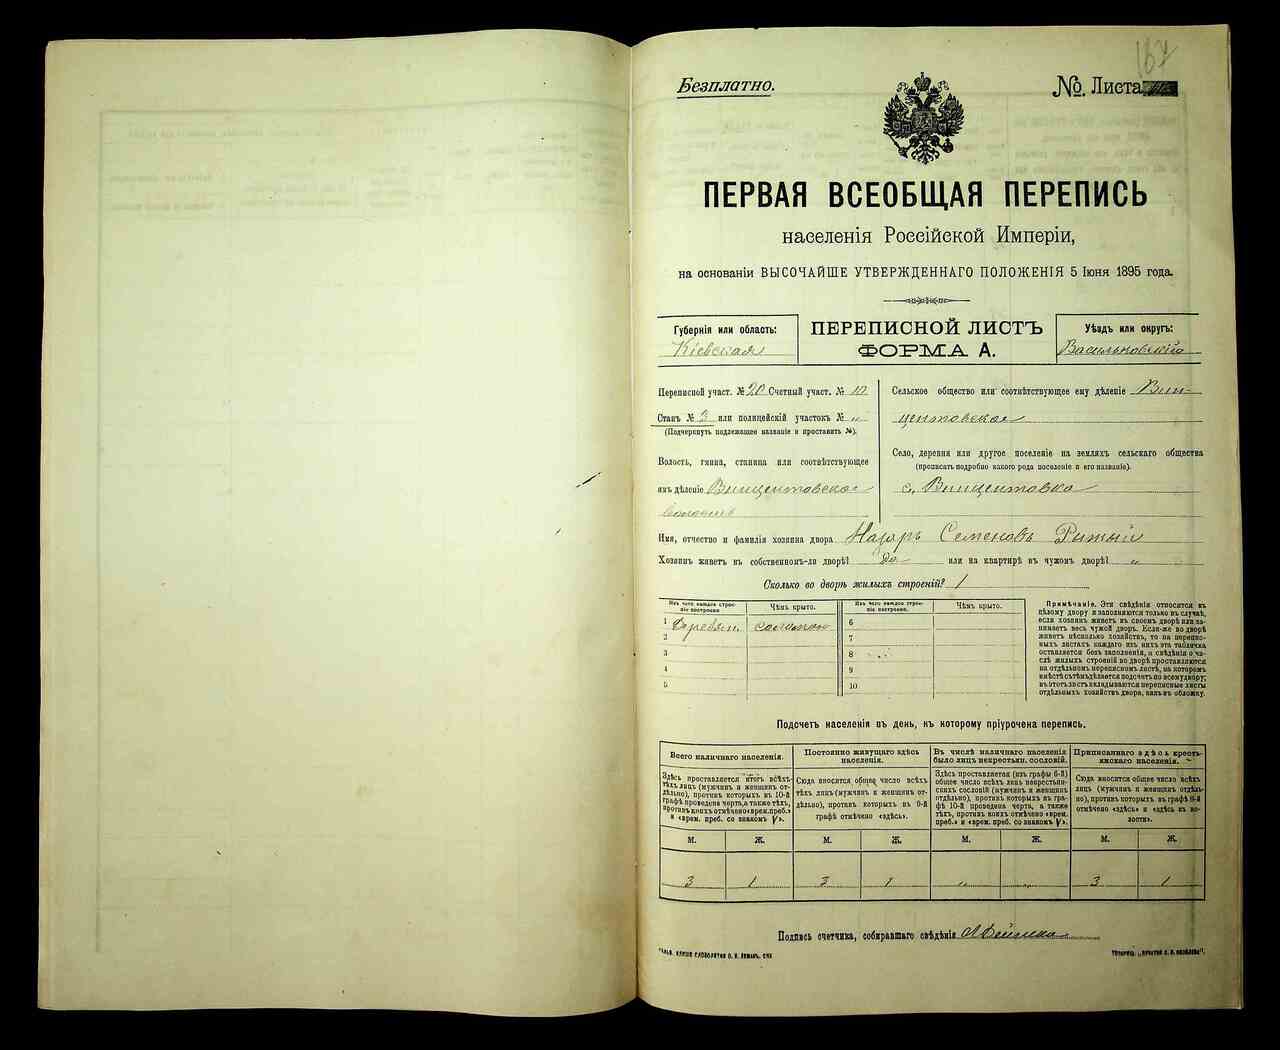 167
Безплатно.
№. Листа
ПЕРВАЯ ВСЕОБЩАЯ ПЕРЕПИСЬ
населенія Россійской Имперіи,
на основаніи ВЫСОЧАЙШЕ УТВЕРЖДЕННАГО ПОЛОЖЕНІЯ 5 Іюня 1895 года.
Губернія или область:
Кіевская
ПЕРЕПИСНОЙ ЛИСТЪ
ФОРМА А.
Уѣздъ или округъ:
Васильковскій
Переписной участ. № 20 Счетный участ. № 10
Станъ № 3 или полицейскій участокъ № "
(Подчеркнуть надлежащее названіе и проставить №).
Волость, гмина, станица или соотвѣтствующее
имъ дѣленіе Винцентовская
волость
Сельское общество или соотвѣтствующее ему дѣленіе Вин-
центовское
Село, деревня или другое поселеніе на земляхъ сельскаго общества
(прописать подробно какого рода поселеніе и его названіе).
с. Винцентовка
Имя, отчество и фамилія хозяина двора Назаръ Семеновъ Рижый
Хозяинъ живетъ въ собственномъ-ли дворѣ? да или на квартирѣ въ чужомъ дворѣ? "
Сколько во дворѣ жилыхъ строеній? 1
Изъ чего каждое строе-
ніе построено.
Чѣмъ крыто.
Изъ чего каждое строе-
ніе построено.
Чѣмъ крыто.
1 Деревян. соломою
2
3
4
5
6
7
8
9
10
Примѣчаніе. Эти свѣдѣнія относятся къ
цѣлому двору и заполняются только въ случаѣ,
если хозяинъ живетъ въ своемъ дворѣ или за-
нимаетъ весь чужой дворъ. Если-же во дворѣ
живетъ нѣсколько хозяйствъ, то на перепис-
ныхъ листахъ каждаго изъ нихъ эта табличка
оставляется безъ заполненія, а свѣдѣнія о чи-
слѣ жилыхъ строеній во дворѣ проставляются
на отдѣльномъ переписномъ листѣ, на которомъ
вмѣстѣ съ тѣмъ дѣлается подсчетъ по всему двору;
въ этотъ листъ вкладываются переписные листы
отдѣльныхъ хозяйствъ двора, какъ въ обложку.
Подсчетъ населенія въ день, къ которому пріурочена перепись.
Всего наличнаго населенія.
Здѣсь проставляется итогъ всѣхъ
тѣхъ лицъ (мужчинъ и женщинъ от-
дѣльно), противъ которыхъ въ 10-й
графѣ проведена черта, а также тѣхъ,
противъ коихъ отмѣчено «врем. преб.»
и «врем. преб. со знакомъ V».
Постоянно живущаго здѣсь
населенія.
Сюда вносится общее число всѣхъ
тѣхъ лицъ (мужчинъ и женщинъ от-
дѣльно), противъ которыхъ въ 9-й
графѣ отмѣчено «здѣсь».
Въ числѣ наличнаго населенія
было лицъ некрестьян. сословій.
Здѣсь проставляется (изъ графы 6-й)
общее число всѣхъ лицъ некрестьян-
скихъ сословій (мужчинъ и женщинъ
отдѣльно), противъ которыхъ въ гра-
фѣ 10-й проведена черта, а также
тѣхъ, противъ коихъ отмѣчено «врем.
преб.» и «врем. преб. со знакомъ V».
Приписаннаго здѣсь кресть-
янскаго населенія.
Сюда вносится общее число всѣхъ
лицъ (мужчинъ и женщинъ отдѣль-
но), противъ которыхъ въ графѣ 8-й
отмѣчено «здѣсь» и «здѣсь къ во-
лости».
М. Ж. М. Ж. М. Ж. М. Ж.
3 1 3 1 " " 3 1
Подпись счетчика, собиравшаго свѣдѣнія